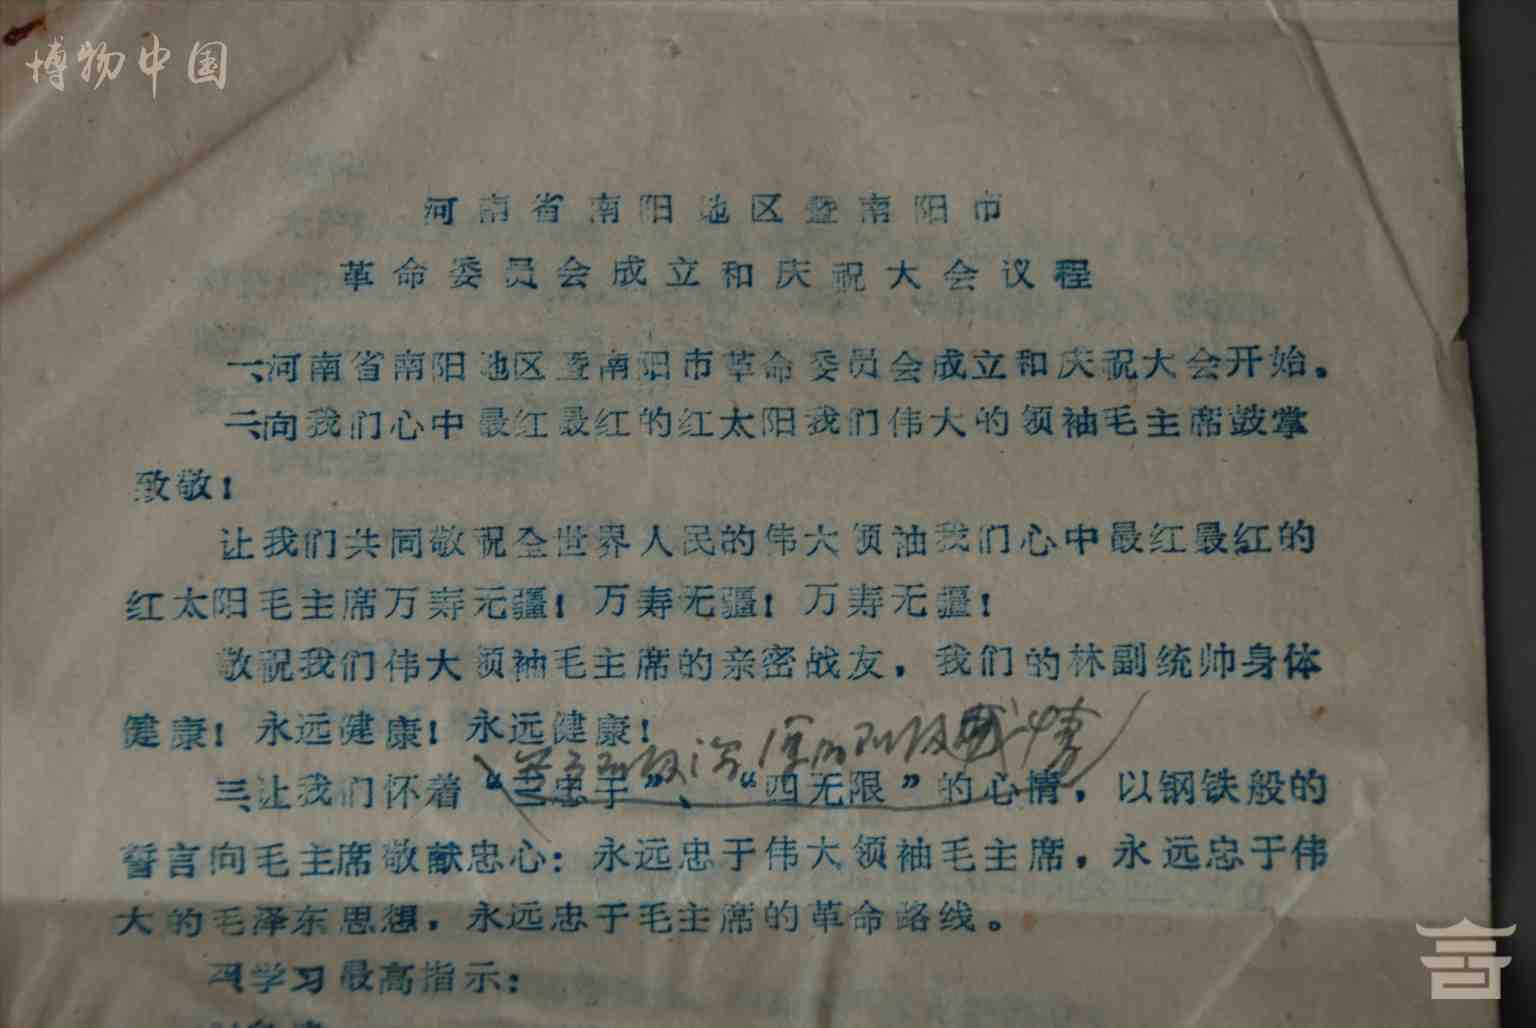 博物中国
河南省南阳地区暨南阳市
革命委员会成立和庆祝大会议程
一、河南省南阳地区暨南阳市革命委员会成立和庆祝大会开始。
二、向我们心中最红最红的红太阳我们伟大的领袖毛主席鼓掌
致敬！
让我们共同敬祝全世界人民的伟大领袖我们心中最红最红的
红太阳毛主席万寿无疆！万寿无疆！万寿无疆！
敬祝我们伟大领袖毛主席的亲密战友，我们的林副统帅身体
健康！永远健康！永远健康！
三、让我们怀着“三忠于”、“四无限”的心情，以钢铁般的
誓言向毛主席敬献忠心：永远忠于伟大领袖毛主席，永远忠于伟
大的毛泽东思想，永远忠于毛主席的革命路线。
四、学习最高指示：